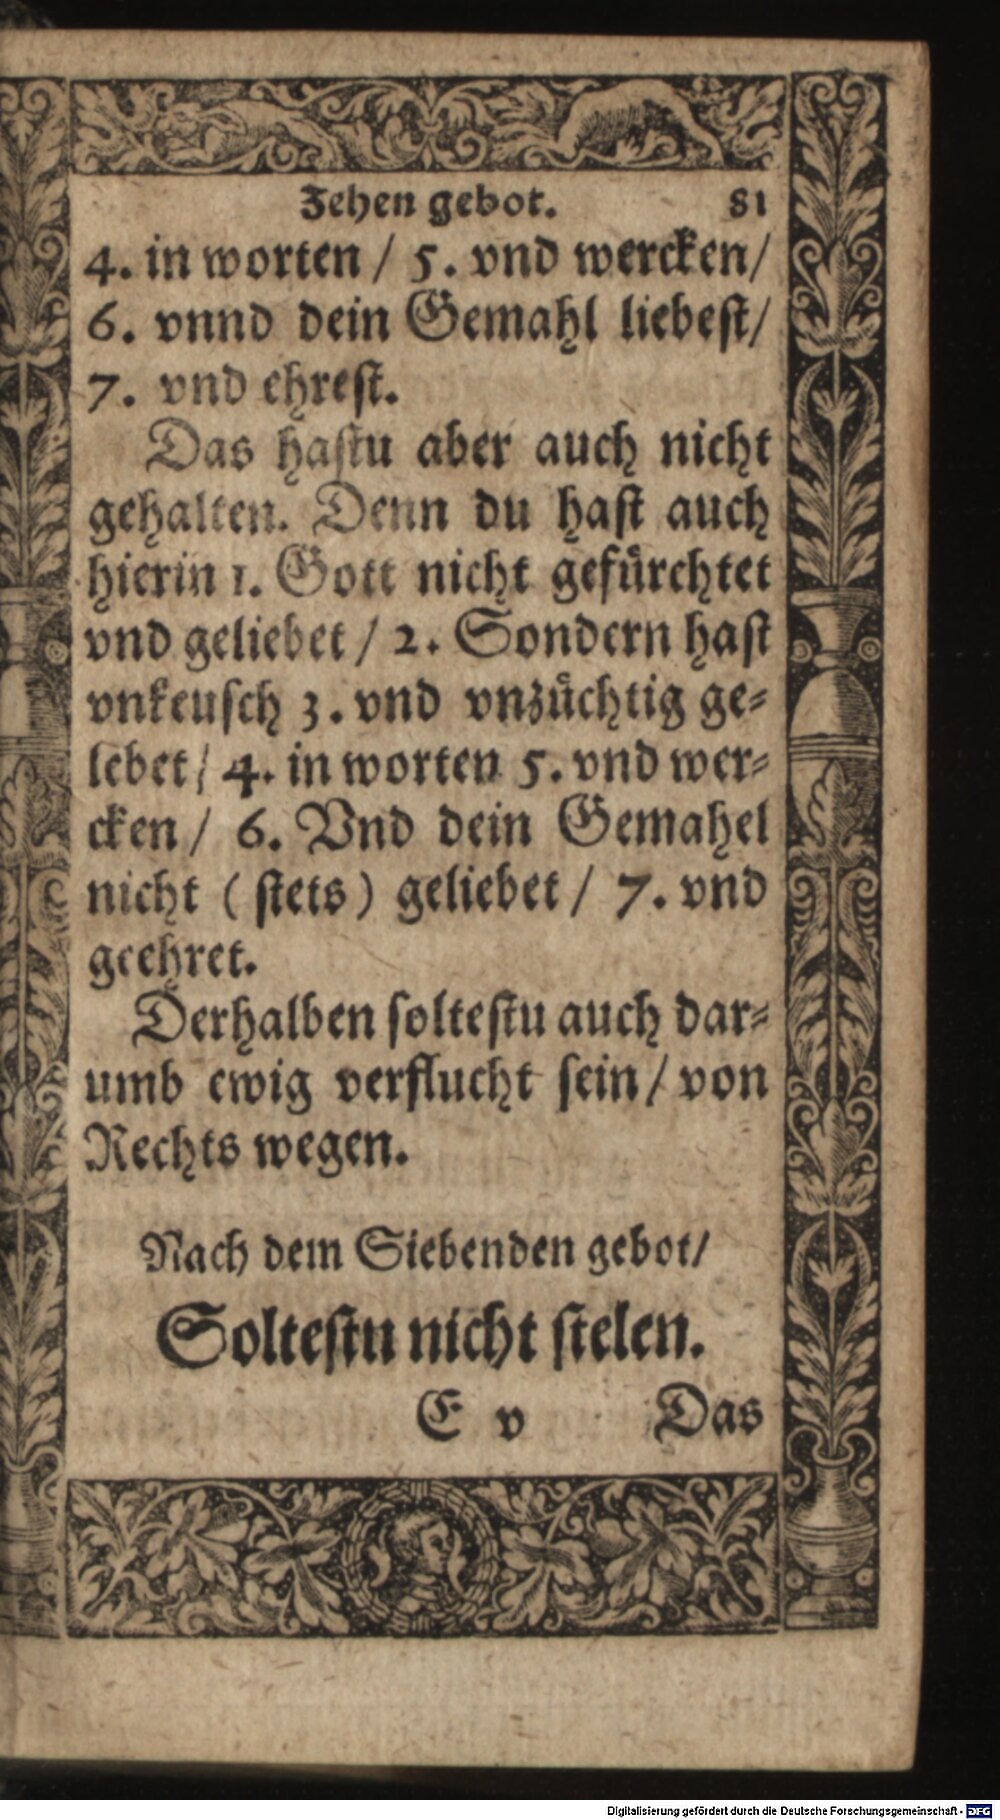 Zehen gebot. 81
4. in worten / 5. vnd wercken/
6. vnnd dein Gemahl liebest/
7. vnd ehrest.
Das hastu aber auch nicht
gehalten. Denn du hast auch
hierin 1. Gott nicht gefürchtet
vnd geliebet / 2. Sondern hast
vnkeusch 3. vnd vnzüchtig ge-
lebet / 4. in worten 5. vnd wer-
cken / 6. Vnd dein Gemahel
nicht ( stets ) geliebet / 7. vnd
geehret.
Derhalben soltestu auch dar-
umb ewig verflucht sein / von
Rechts wegen.
Nach dem Siebenden gebot/
Soltestu nicht stelen.
E v Das
Digitalisierung gefördert durch die Deutsche Forschungsgemeinschaft - DFG